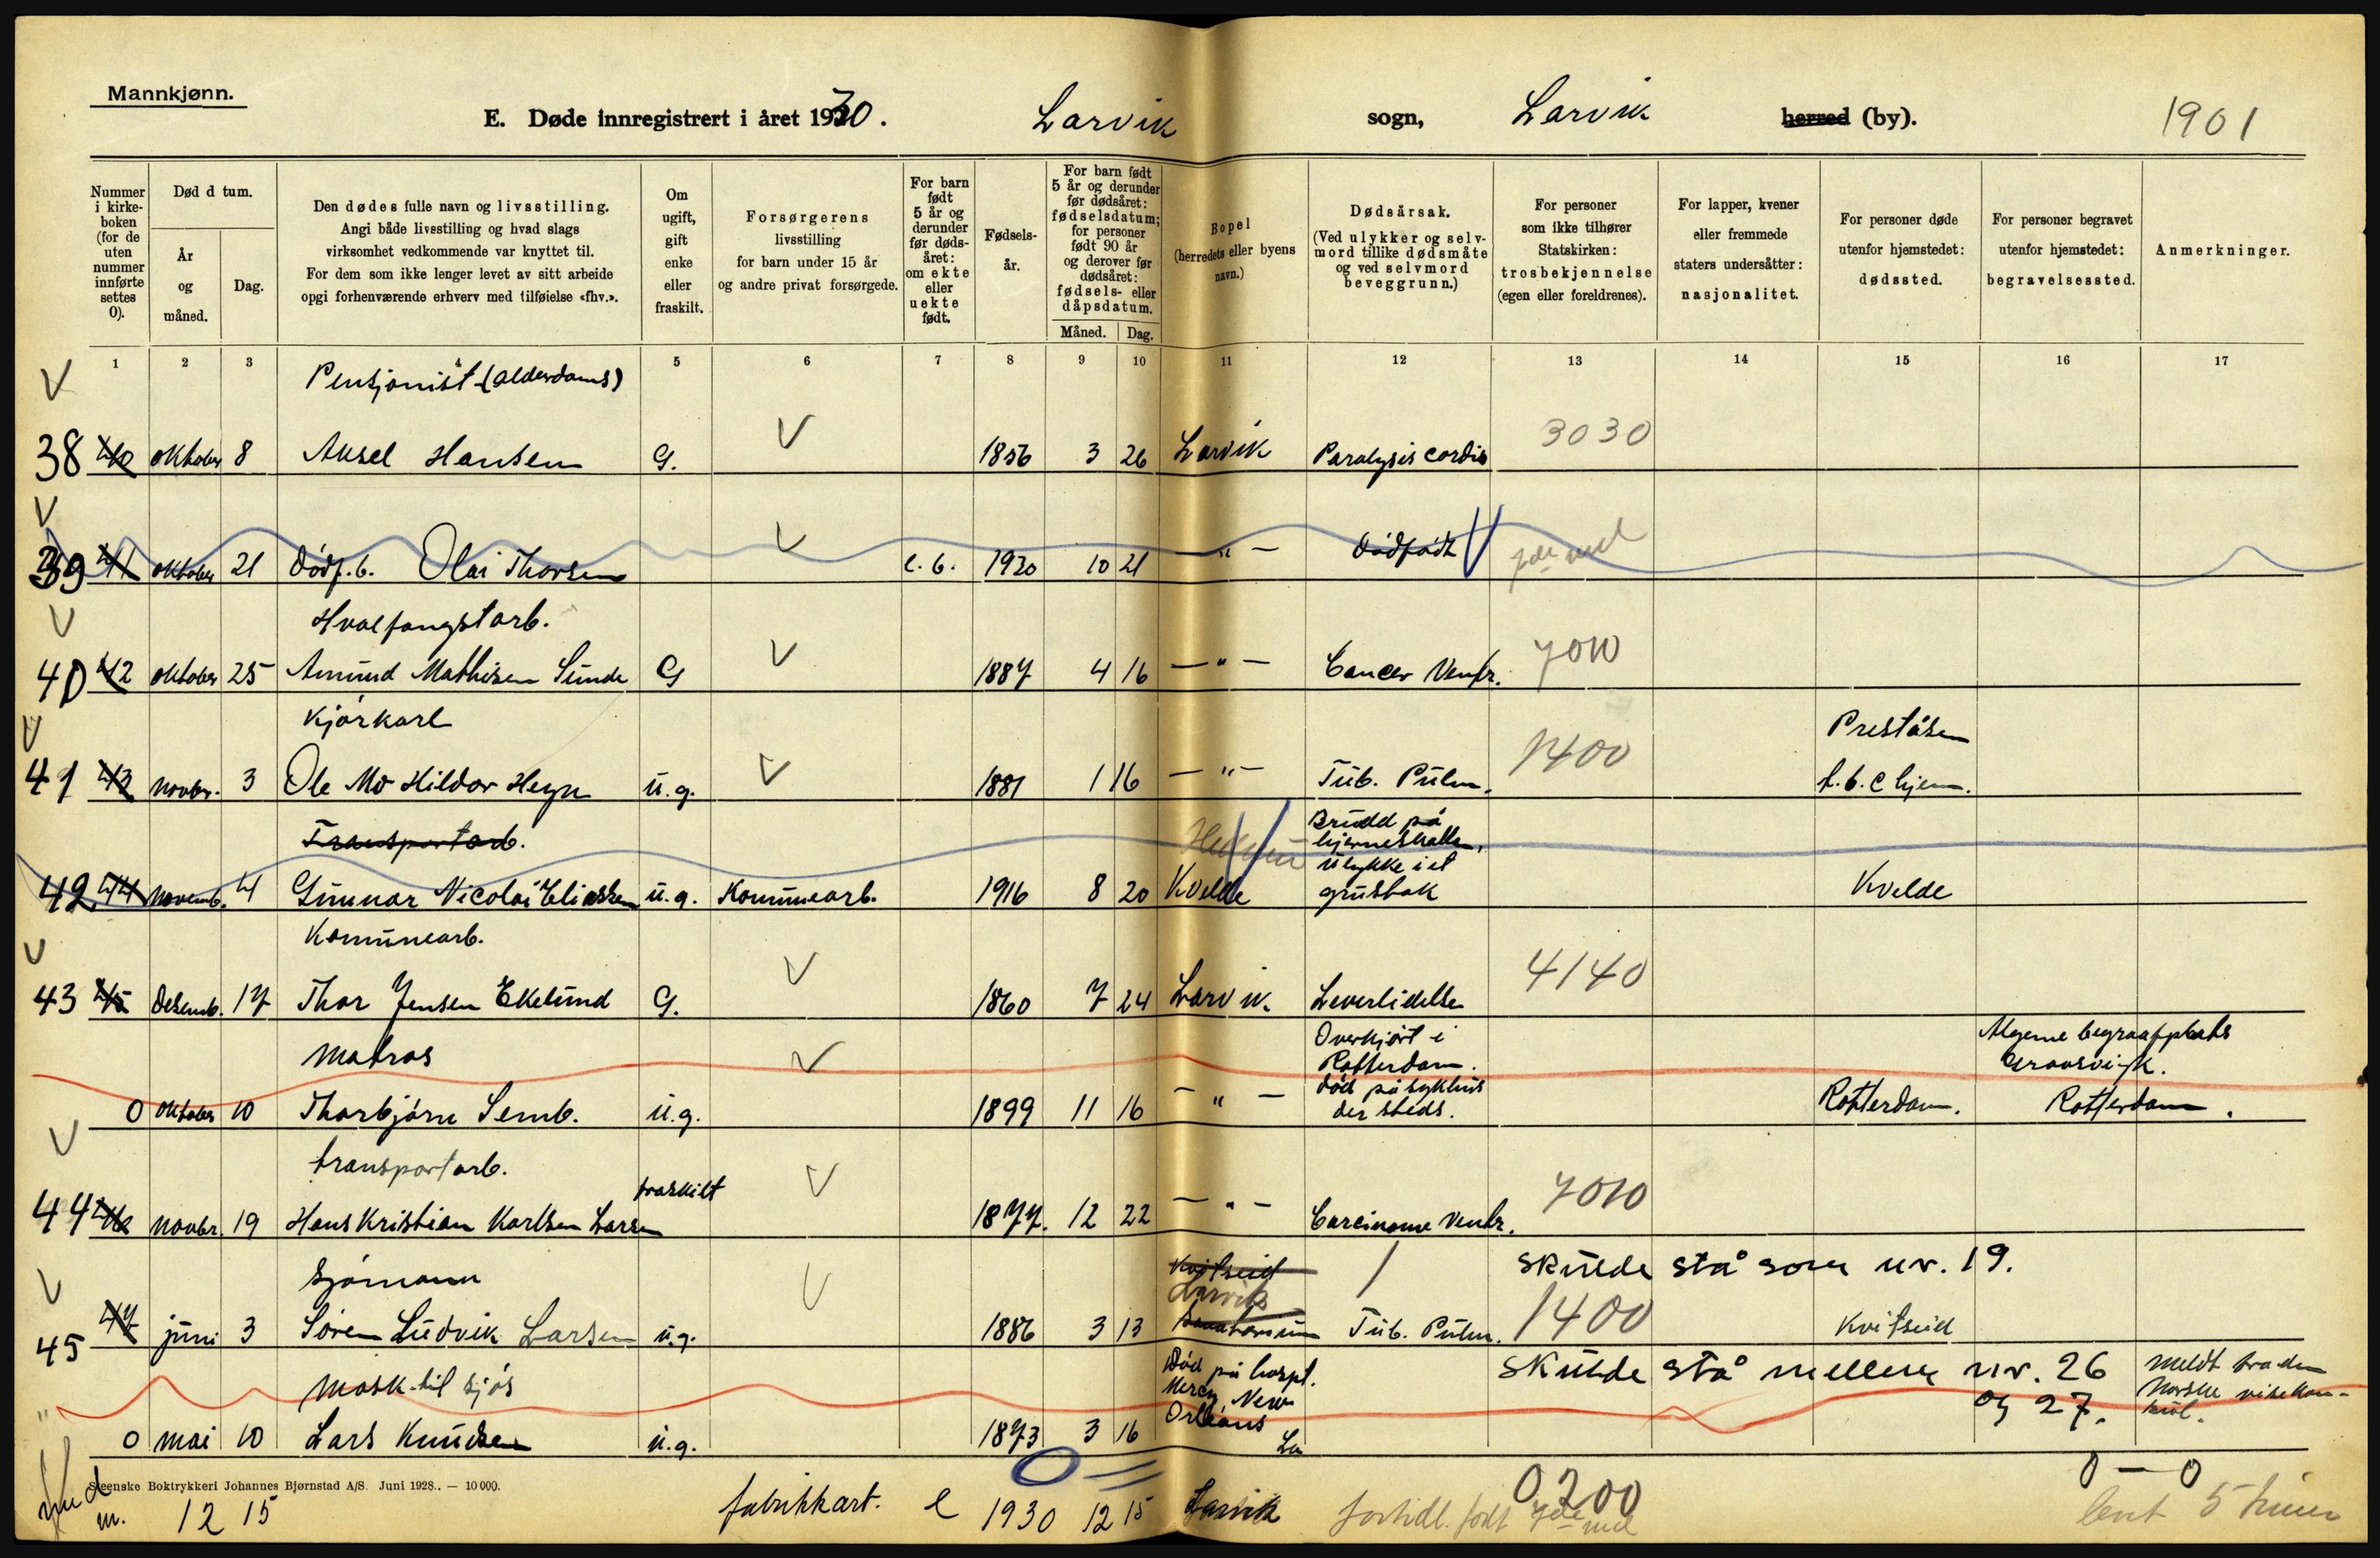 Mannkjønn.
E. Døde innregistrert i året 1930. Larvik sogn, Larvik herred (by). 1901
Nummer i kirkeboken (for de uten nummer innførte settes 0).
Død d tum.
År og måned.
Dag.
Den dødes fulle navn og livsstilling.
Angi både livsstilling og hvad slags
virksomhet vedkommende var knyttet til.
For dem som ikke lenger levet av sitt arbeide
opgi forhenværende erhverv med tilføielse «fhv.».
Om ugift, gift enke eller fraskilt.
Forsørgerens livsstilling for barn under 15 år og andre privat forsørgede.
For barn født 5 år og derunder før dødsåret: om ekte eller uekte født.
Fødselsår.
For barn født 5 år og derunder før dødsåret: fødselsdatum; for personer født 90 år og derover før dødsåret: fødsels- eller dåpsdatum.
Måned. Dag.
Bopel (herredets eller byens navn.)
Dødsårsak. (Ved ulykker og selvmord tillike dødsmåte og ved selvmord beveggrunn.)
For personer som ikke tilhører Statskirken: trosbekjennelse (egen eller foreldrenes).
For lapper, kvener eller fremmede staters undersåtter: nasjonalitet.
For personer døde utenfor hjemstedet: dødssted.
For personer begravet utenfor hjemstedet: begravelsessted.
Anmerkninger.
1 2 3 4 5 6 7 8 9 10 11 12 13 14 15 16 17
Pensjonist (alderdoms)
38 40 oktober 8 Aksel Hansen G. V 1856 3 26 Larvik Paralysis cordis 3030
39 41 oktober 21 Dødf. b. Olai Thorsen V e. b. 1930 10 21 — " — Dødfødt
Hvalfangstarb.
40 42 oktober 25 Amund Mathisen Sunde G V 1887 4 16 — " — Cancer Ventr. 7010
Kjørkarl Preståsen
41 43 novbr. 3 Ole Mo Hildor Heyn u.g. V 1881 1 16 — " — Tub. Pulm. 1400 t.b.c hjem.
Transportarb. Hedrum Brudd på
hjerneskallen,
ulykke i et
42 44 novemb. 4 Gunnar Nicolai Eliassen u.g. Kommunearb. 1916 8 20 Kvelde grustak Kvelde
Kommunearb.
43 45 Desemb. 17 Thor Jensen Ekelund G. V 1860 7 24 Larvik. Leverlidelse 4140
Matros V Overkjørt i
Rotterdam.
død på sykhus
0 oktober 10 Thorbjørn Semb. u.g. 1899 11 16 — " — der steds. Rotterdam. Rotterdam.
transportarb.
44 46 novbr. 19 Hans Kristian Karlsen Larsen fraskilt V 1877. 12 22 — " — Carcinome Ventr. 7010
Sjømann V Kvitseid skulde stå som nr. 19.
Larvik
45 47 juni 3 Søren Ludvik Larsen u.g. 1886 3 13 Sanatorium Tub. Pulm. 1400 Kvitseid
Mask. til sjøs Død på hospt. skulde stå mellem nr. 26 meldt fra den
Mercy New og 27. Norske visekonsul.
0 mai 10 Lars Knudsen u.g. 1873 3 16 Orleans La
Steenske Boktrykkeri Johannes Bjørnstad A/S. Juni 1928. — 10 000.
m. 12 15 fabrikkarb. e 1930 12 15 Larvik fortidl. født 0200 0 — 0
levt 5 timer